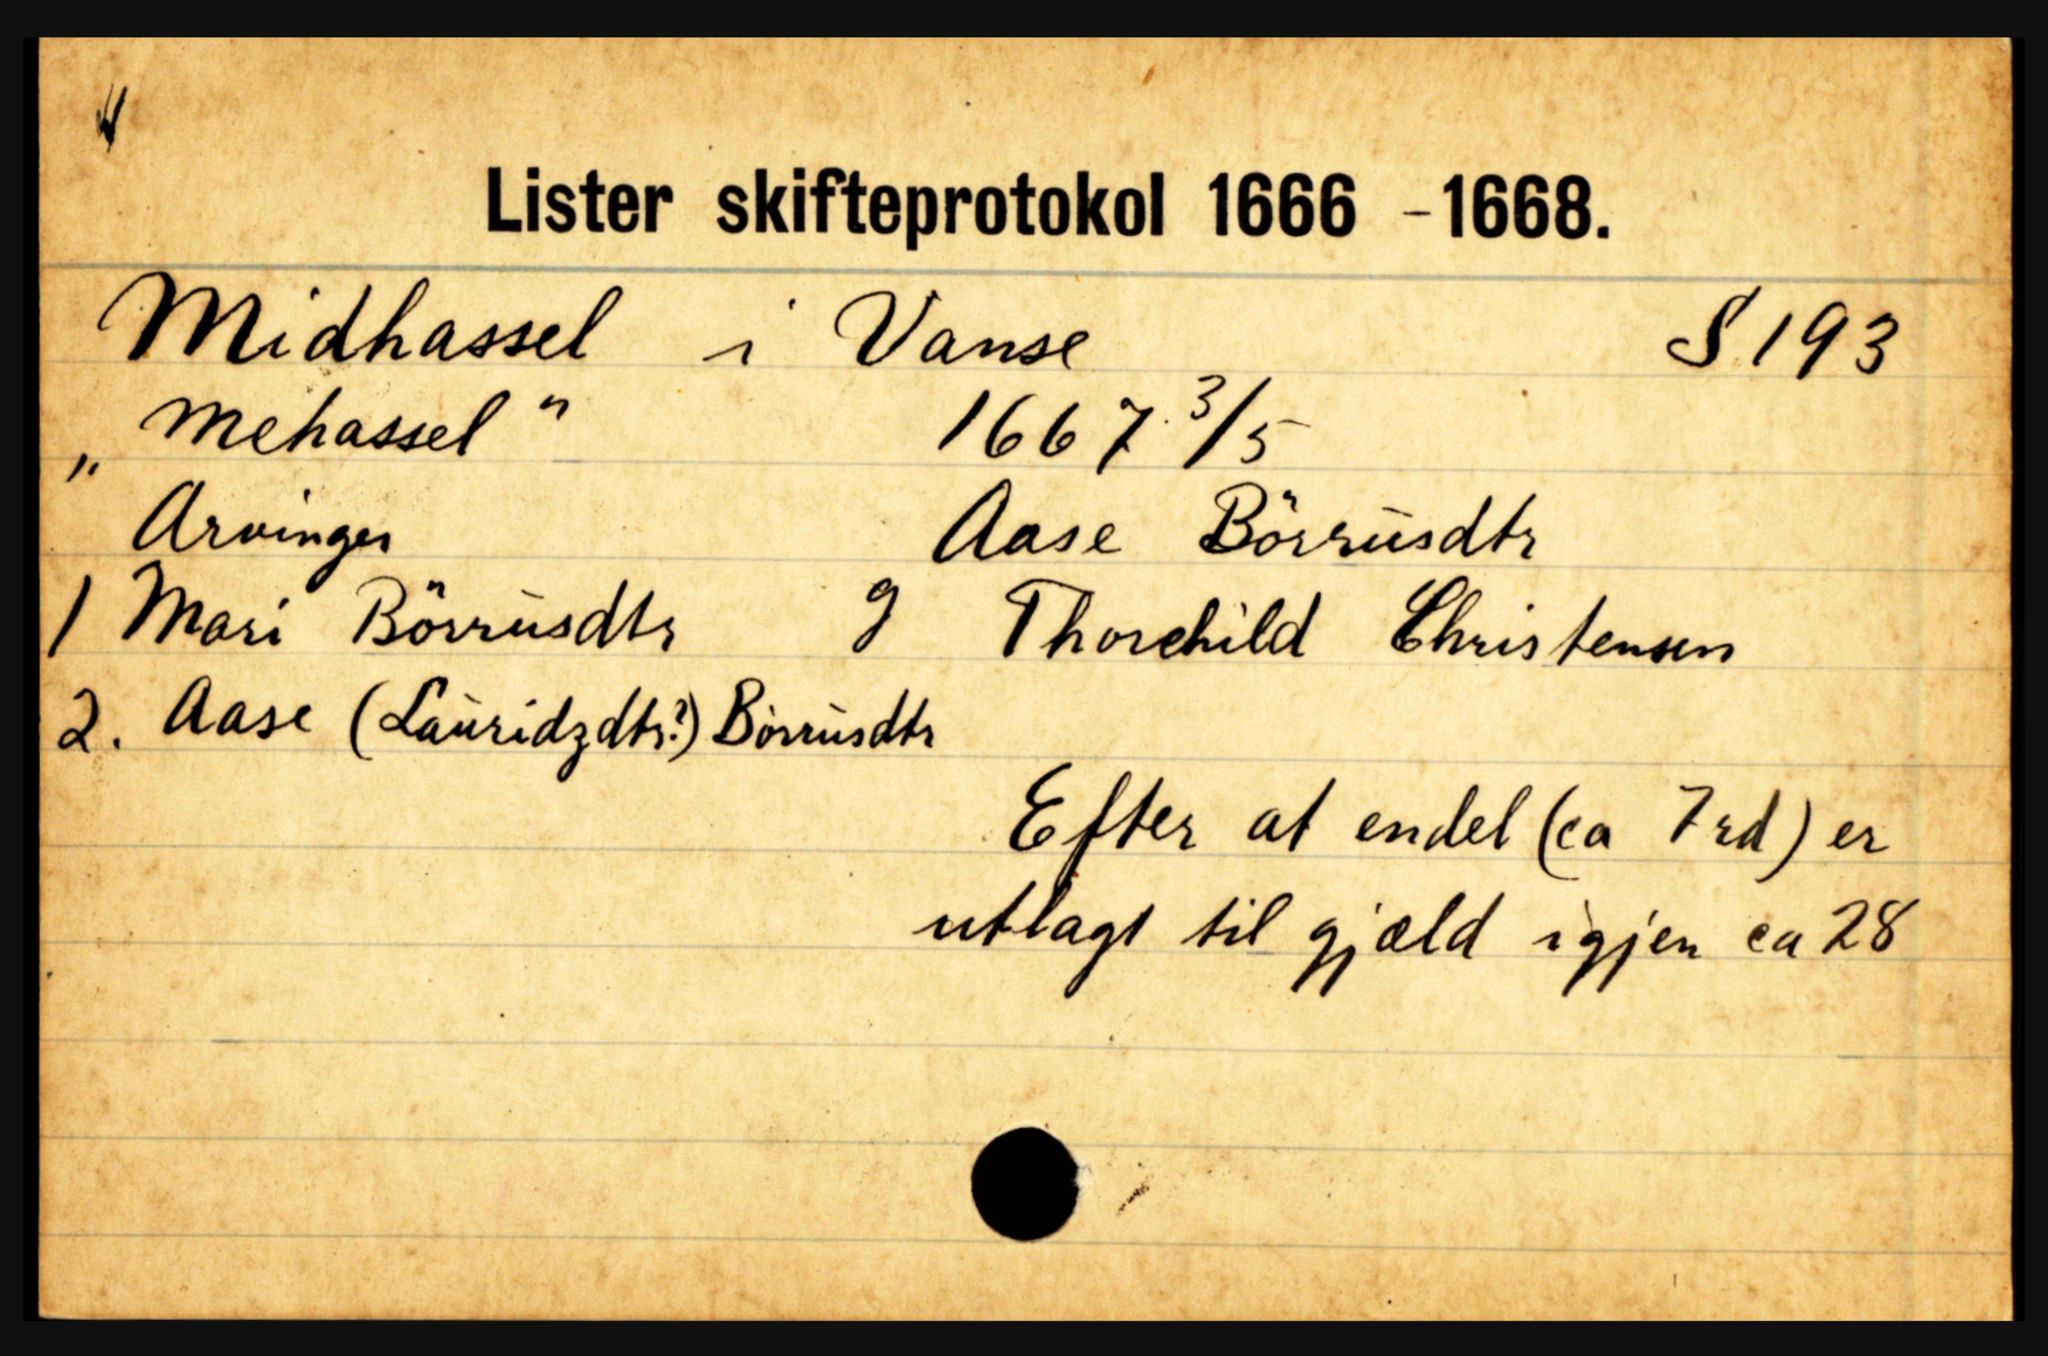 Lister skifteprotokol 1666 - 1668.
Midhassel i Vanse S 193
„Mehassel“ 1667 3/5
Arvinger Aase Börrusdtr
1 Mari Börrusdtr g Thorchild Christensen
2. Aase (Lauridzdtr?) Börrusdtr
Efter at endel (ca 7 rd) er
utlagt til gjæld igjen ca 28